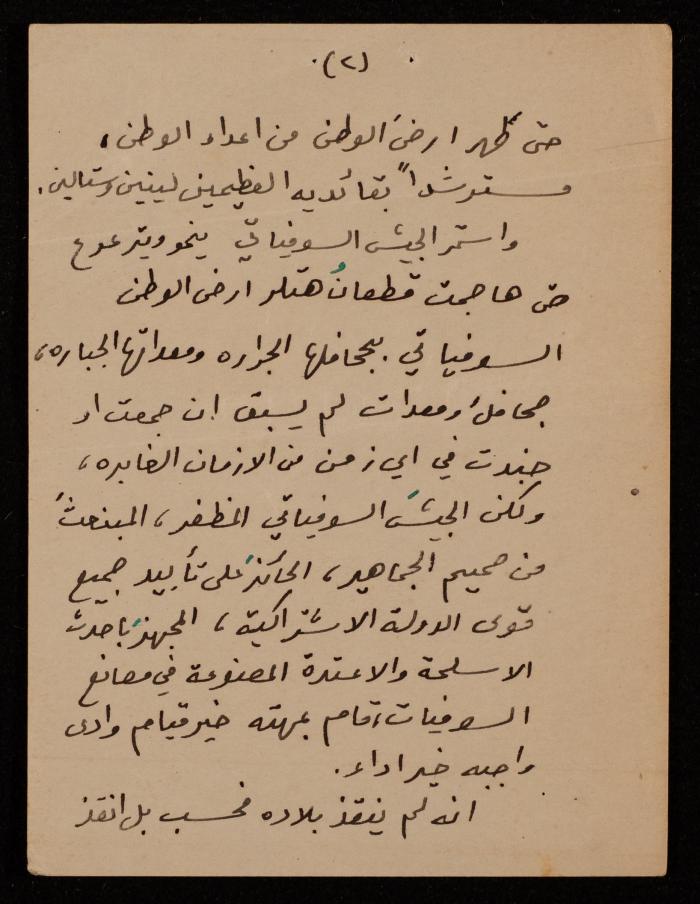 (٢)
حتى طهر ارضَ الوطن من اعداء الوطن،
مسترشداً بقائديه العظيمين لينين وستالين.
واستمر الجيش السوفياتي ينمو ويترعرع
حتى هاجمت قطعانُ هتلر ارض الوطن
السوفياتي. بجحافلها الجراره ومعداتها الجباره،
جحافلُ ومعدات لم يسبق ان جمعت او
جندت في اي زمن من الازمان الغابره،
ولكن الجيشَ السوفياتي المظفر، المنبعثَ
من صميم الجماهير، الحائزَ على تأييد جميع
قوى الدولة الاشتراكية، المجهزَ باحدث
الاسلحة والاعتدة المصنوعة في مصانع
السوفيات، قام بمهمته خير قيام وادى
واجبه خير اداء.
انه لم ينقذ بلاده فحسب بل انقذ